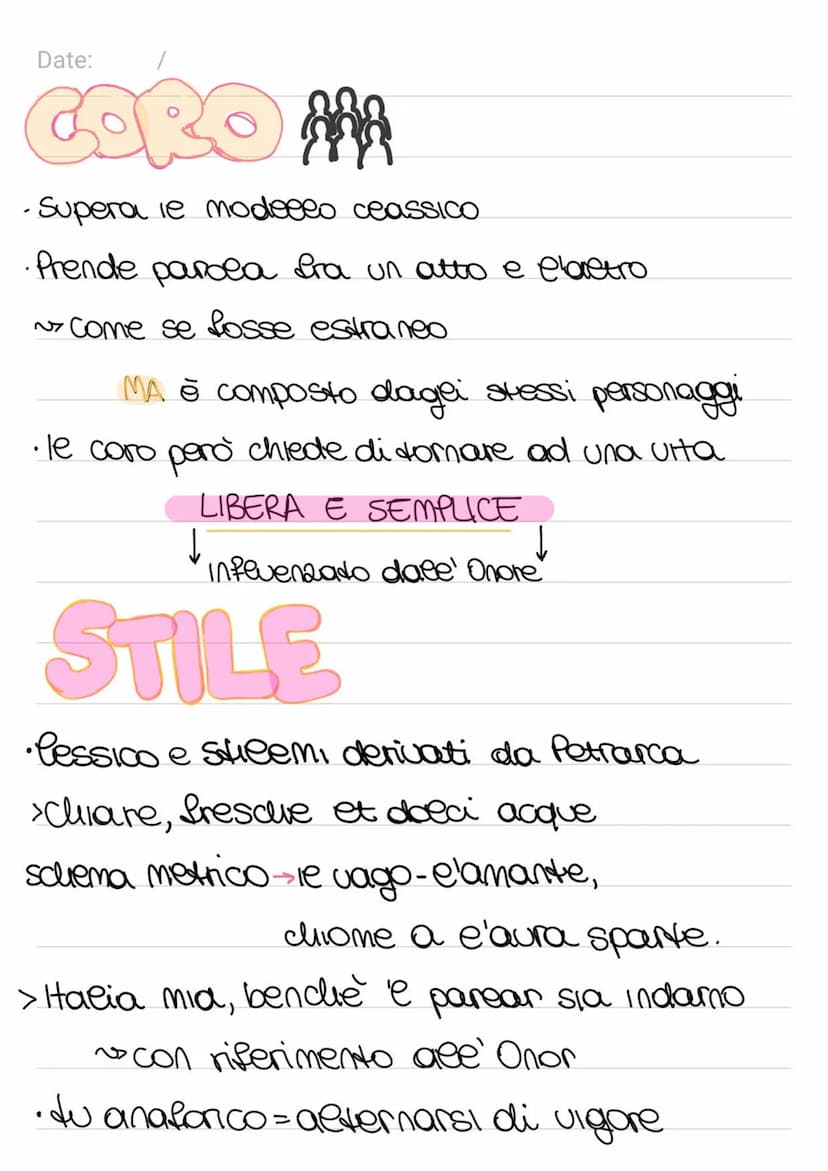 Date: /
CORO
· Supera il modello classico
· Prende parola fra un atto e l'altro
~> Come se fosse estraneo
MA è composto dagli stessi personaggi
· Il coro però chiede di tornare ad una vita
LIBERA E SEMPLICE
↓ influenzato dall' Onore ↓
STILE
· lessico e stilemi derivati da Petrarca
> Chiare, fresche et dolci acque
schema metrico → il vago - l'amante,
chiome a l'aura sparte.
> Italia mia, benchè 'l parlar sia indarno
~> con riferimento all' Onor
· tu anaforico = alternarsi di vigore